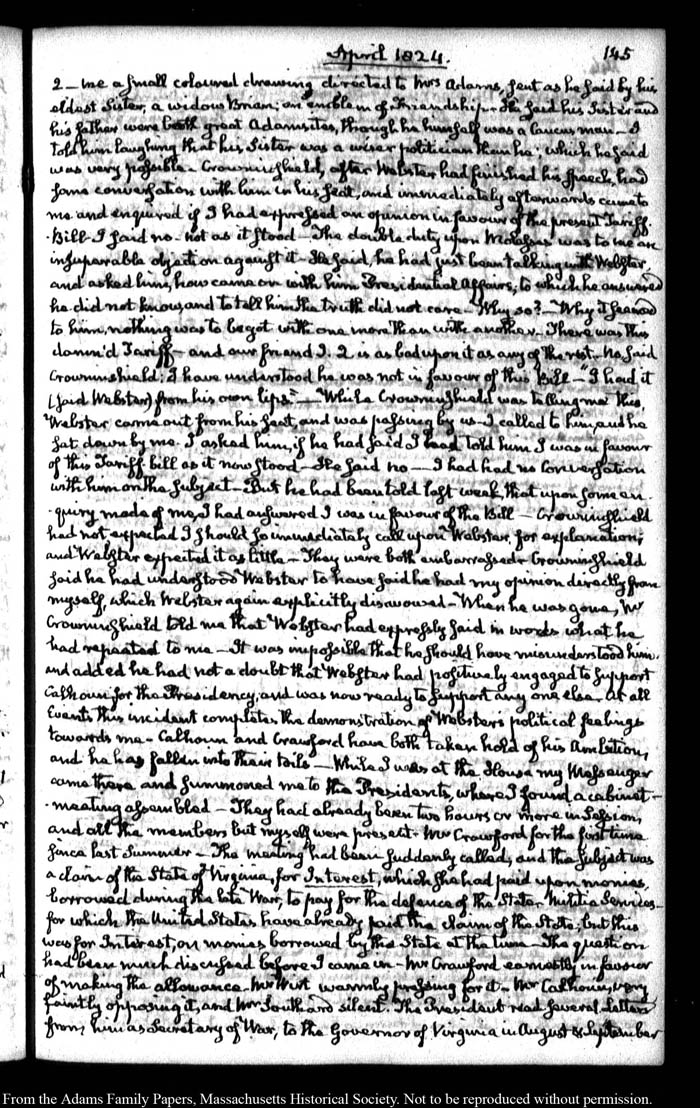 April 1824. 145
2 — me a small coloured drawing directed to Mrs Adams, sent as he said by his
eldest Sister, a widow Brian; an emblem of Friendship — He said his Sister and
his father were both great Adamsites, though he himself was a Caucus man — I
told him laughing that his Sister was a wiser politician than he; which he said
was very possible — Crowninshield, after Webster had finished his speech, had
some conversation with him in his seat, and immediately afterwards came to
me and enquired if I had expressed an opinion in favour of the present Tariff
Bill — I said no — not as it stood — The double duty upon Molasses was to me an
insuperable objection against it — He said, he had just been talking with Webster,
and asked him, how came on with him Presidential Affairs; to which he answered
he did not know, and to tell him the truth did not care — Why so? — Why it seemed
to him, nothing was to be got with one more than with another — There was this
damn'd Tariff — and our friend J. Q. is as bad upon it as any of the rest — No said
Crowninshield; I have understood he was not in favour of this Bill — "I had it
(said Webster) from his own lips" — While Crowninshield was telling me this,
Webster came out from his seat, and was passing by us — I called to him, and he
sat down by me. I asked him, if he had said I had told him I was in favour
of this Tariff bill as it now stood — He said no — I had had no Conversation
with him on the subject — But he had been told last week, that upon some en-
-quiry made of me, I had answered I was in favour of the Bill — Crowninshield
had not expected I should so immediately call upon Webster, for explanation,
and Webster expected it as little — They were both embarrassed — Crowninshield
said he had understood Webster to have said he had my opinion directly from
myself, which Webster again explicitly disavowed — When he was gone, Mr
Crowninshield told me that Webster had expressly said in words what he
had repeated to me — It was impossible that he should have misunderstood him.
and added he had not a doubt that Webster had positively engaged to support
Calhoun for the Presidency, and was now ready to support any one else. At all
Events this incident completes the demonstration of Webster's political feelings
towards me — Calhoun and Crawford have both taken hold of his Ambition,
and he has fallen into their toils — While I was at the House my Messenger
came there and summoned me to the Presidents, where I found a cabinet-
-meeting assembled — They had already been two hours or more in Session,
and all the members but myself were present — Mr Crawford for the first time
since last Summer — The meeting had been suddenly called, and the subject was
a claim of the State of Virginia, for Interest, which she had paid upon monies,
borrowed during the late War, to pay for the defence of the State — Militia Services —
for which the United States have already paid the claim of the State; but this
was for Interest, on monies borrowed by the State at the time — The question
had been much discussed before I came in — Mr Crawford earnestly in favour
of making the allowance — Mr Wirt warmly pressing for it — Mr Calhoun, very
faintly opposing it, and Mr Southard silent. The President read several Letters
from him as Secretary of War, to the Governor of Virginia in August & September
From the Adams Family Papers, Massachusetts Historical Society. Not to be reproduced without permission.